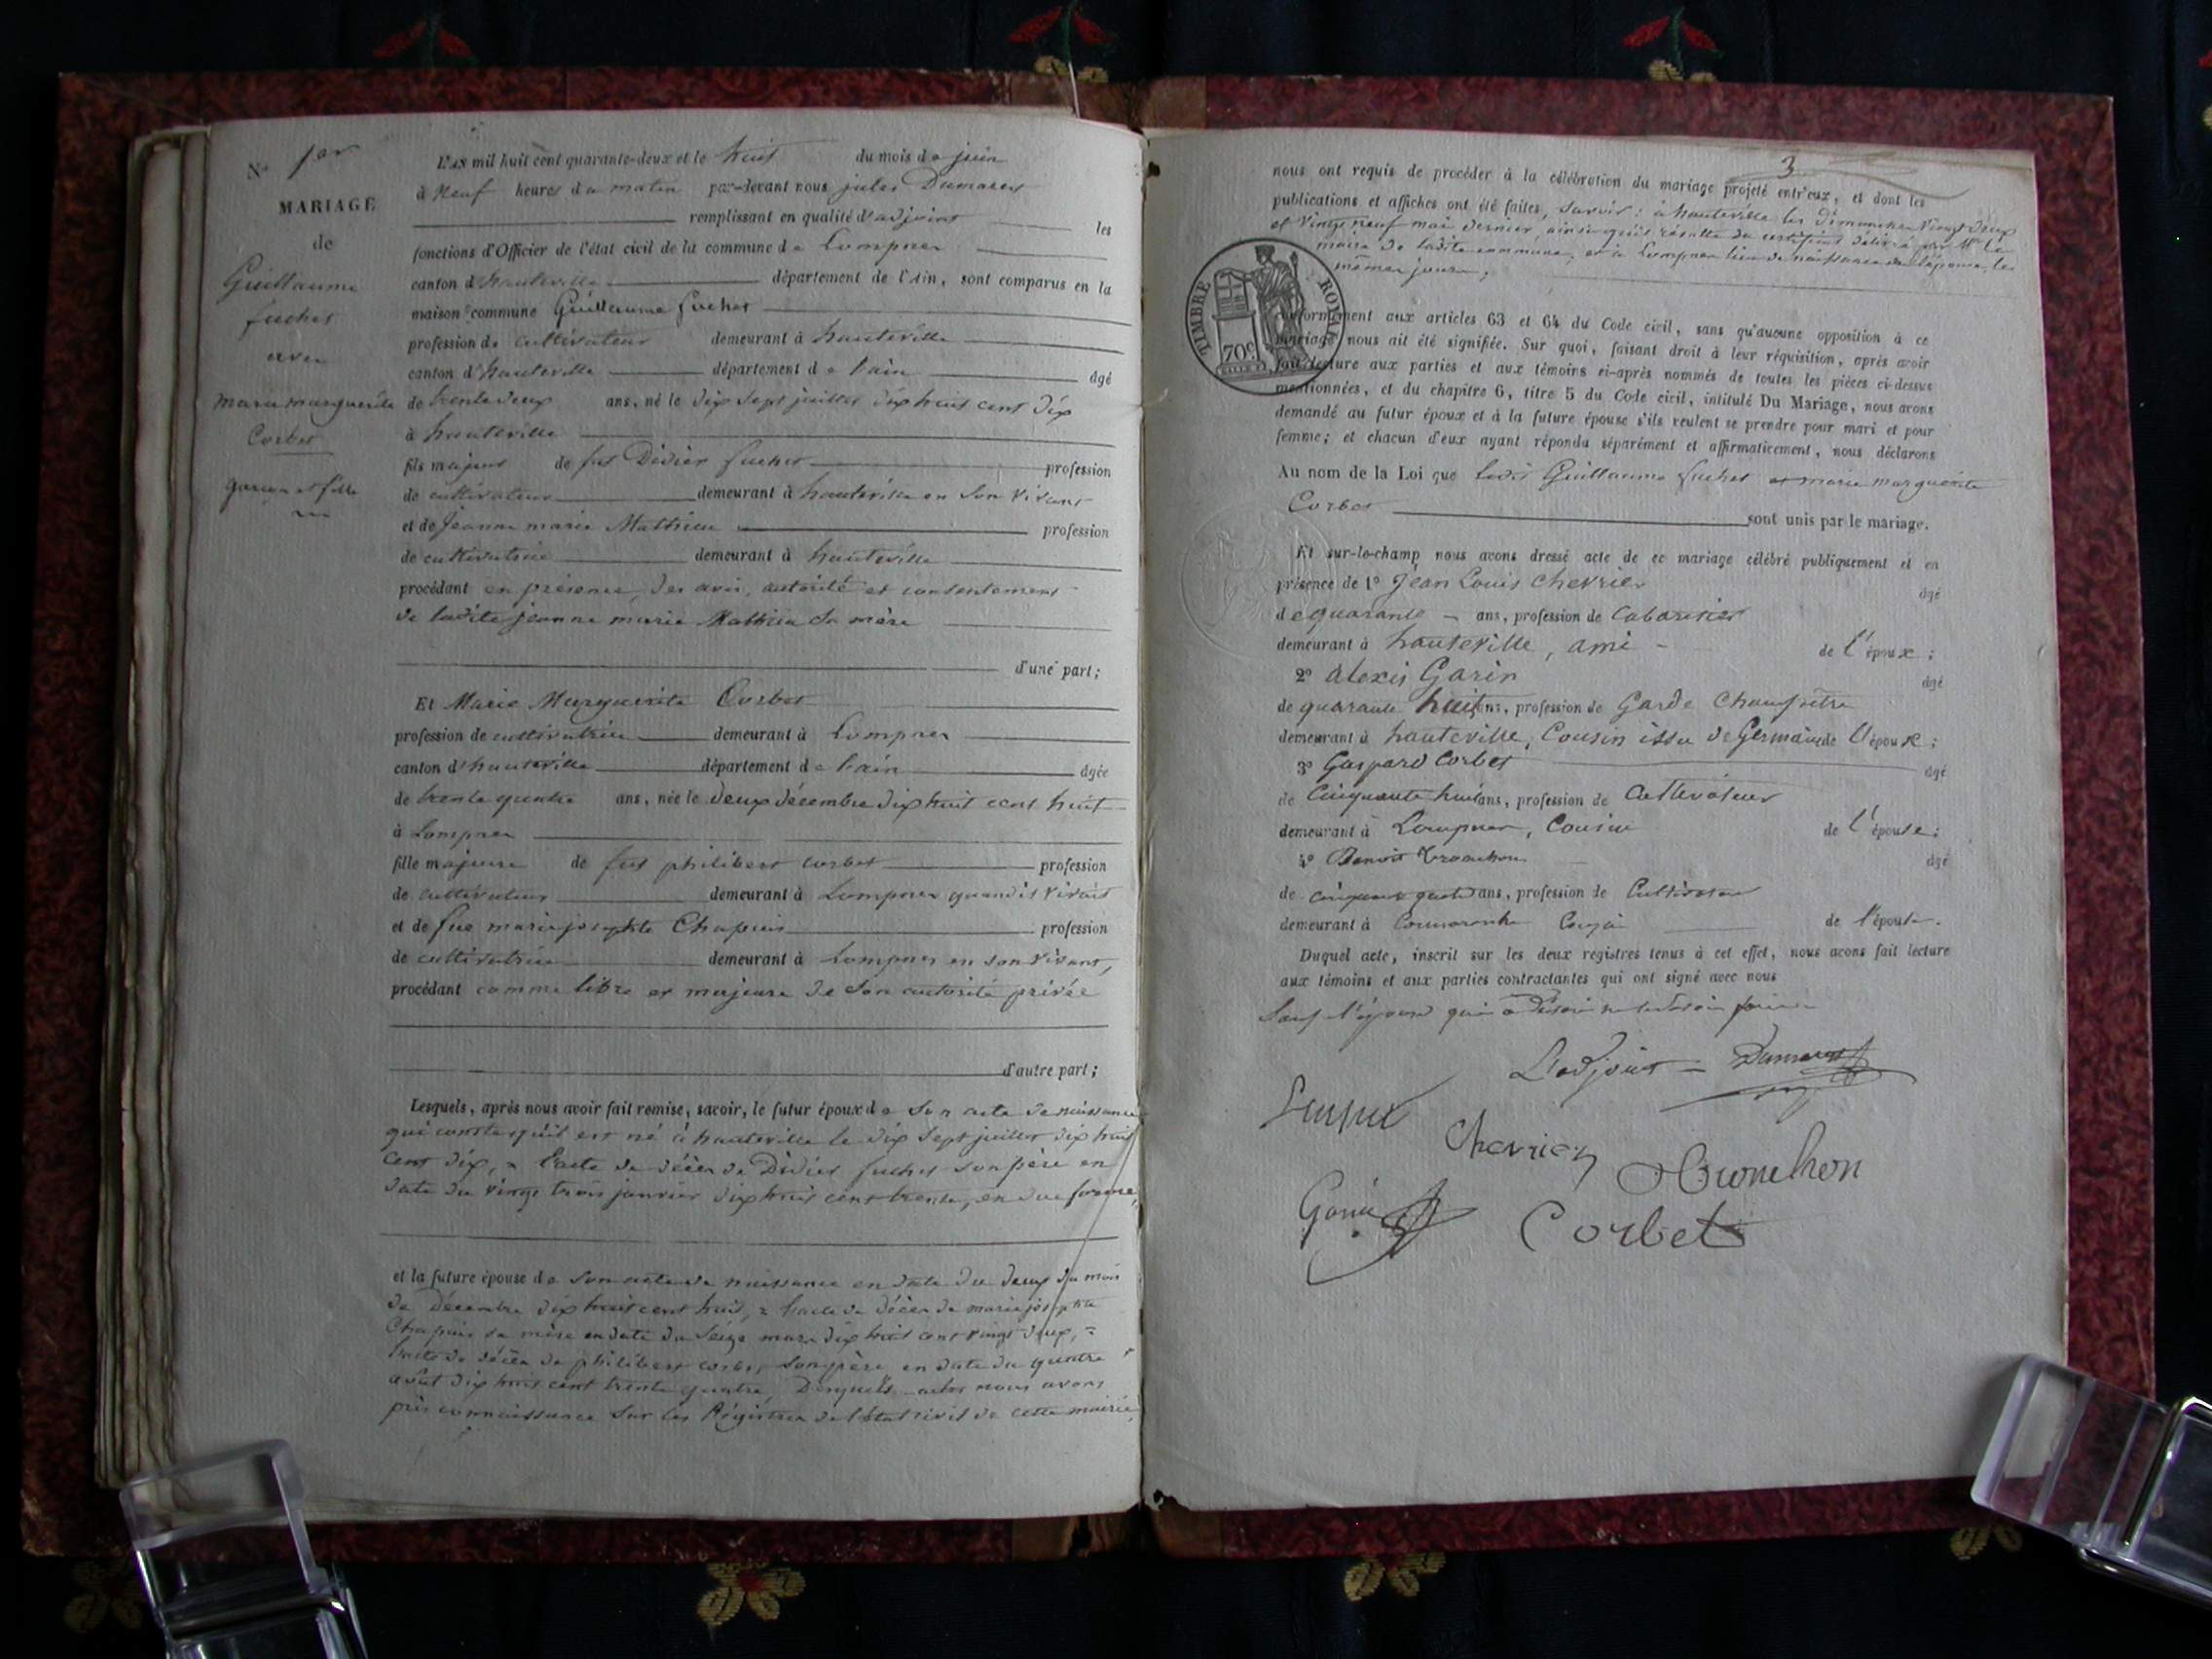 N° 1er
MARIAGE
de
Guillaume
fuchet
avec
marie marguerite
Corbet
garçon et fille
L'AN mil huit cent quarante-deux et le huit du mois de juin
à neuf heures du matin par-devant nous jules Dumarest
remplissant en qualité d'adjoint les
fonctions d'Officier de l'état civil de la commune de Lompnes
canton d'hauteville département de l'Ain, sont comparus en la
maison commune Guillaume fuchet
profession de cultivateur demeurant à hauteville
canton d'hauteville département de l'ain âgé
de trente deux ans, né le dix sept juillet dix huit cent dix
à hauteville
fils majeur de fut Didier fuchet profession
de cultivateur demeurant à hauteville en son vivant
et de jeanne marie Mathieu profession
de cultivatrice demeurant à hauteville
procédant en présence, des avis, autorité et consentement
de ladite jeanne marie Mathieu sa mère
d'une part;
Et Marie Marguerite Corbet
profession de cultivatrice demeurant à Lompnes
canton d'hauteville département de l'ain âgée
de trente quatre ans, née le deux décembre dix huit cent huit
à Lompnes
fille majeure de fut philibert corbet profession
de cultivateur demeurant à Lompnes quand il vivait
et de fue marie josephte Chapuis profession
de cultivatrice demeurant à Lompnes en son vivant,
procédant comme libre et majeure de son autorité privée
d'autre part;
Lesquels, après nous avoir fait remise, savoir, le futur époux de son acte de naissance
qui constate qu'il est né à hauteville le dix sept juillet dix huit
cent dix, = l'acte de décès de Didier fuchet son père en
date du vingt trois janvier dix huit cent trente, en due forme,
et la future épouse de son acte de naissance en date du deux du mois
de Décembre dix huit cent huit, = l'acte de décès de marie josephte
Chapuis sa mère en date du seize mars dix huit cent vingt deux, =
l'acte de décès de philibert corbet, son père, en date du quatre
août dix huit cent trente quatre, Desquels actes nous avons
pris connaissance sur les Régistres de l'état civil de cette mairie,
3
nous ont requis de procéder à la célébration du mariage projeté entr'eux, et dont les
publications et affiches ont été faites, savoir: à hauteville les dimanches vingt deux
et vingt neuf mai dernier, ainsi qu'il résulte du certificat délivré par Mr le
maire de ladite commune, et à Lompnes lieu de naissance de l'épouse, les
mêmes jours;
TIMBRE ROYAL
70c
conformément aux articles 63 et 64 du Code civil, sans qu'aucune opposition à ce
mariage nous ait été signifiée. Sur quoi, faisant droit à leur réquisition, après avoir
fait lecture aux parties et aux témoins ci-après nommés de toutes les pièces ci-dessus
mentionnées, et du chapitre 6, titre 5 du Code civil, intitulé Du Mariage, nous avons
demandé au futur époux et à la future épouse s'ils veulent se prendre pour mari et pour
femme; et chacun d'eux ayant répondu séparément et affirmativement, nous déclarons
Au nom de la Loi que ledit Guillaume fuchet et marie marguerite
Corbet sont unis par le mariage.
Et sur-le-champ nous avons dressé acte de ce mariage célébré publiquement et en
présence de 1° Jean Louis Chevrier âgé
de quarante ans, profession de Cabaretier
demeurant à hauteville, ami de l'époux;
2° Alexis Garin âgé
de quarante huit ans, profession de Garde Champêtre
demeurant à hauteville, Cousin issu de Germain de l'époux;
3° Gaspard Corbet âgé
de Cinquante huit ans, profession de Cultivateur
demeurant à Lompnes, Cousin de l'épouse;
4° Benoit Tronchon âgé
de ans, profession de Cultivateur
demeurant à Cormaranche Cousin de l'épouse.
Duquel acte, inscrit sur les deux registres tenus à cet effet, nous avons fait lecture
aux témoins et aux parties contractantes qui ont signé avec nous
Sauf l'épouse qui a
L'adjoint Dumarest
Chevrier
Tronchon
Garin
Corbet